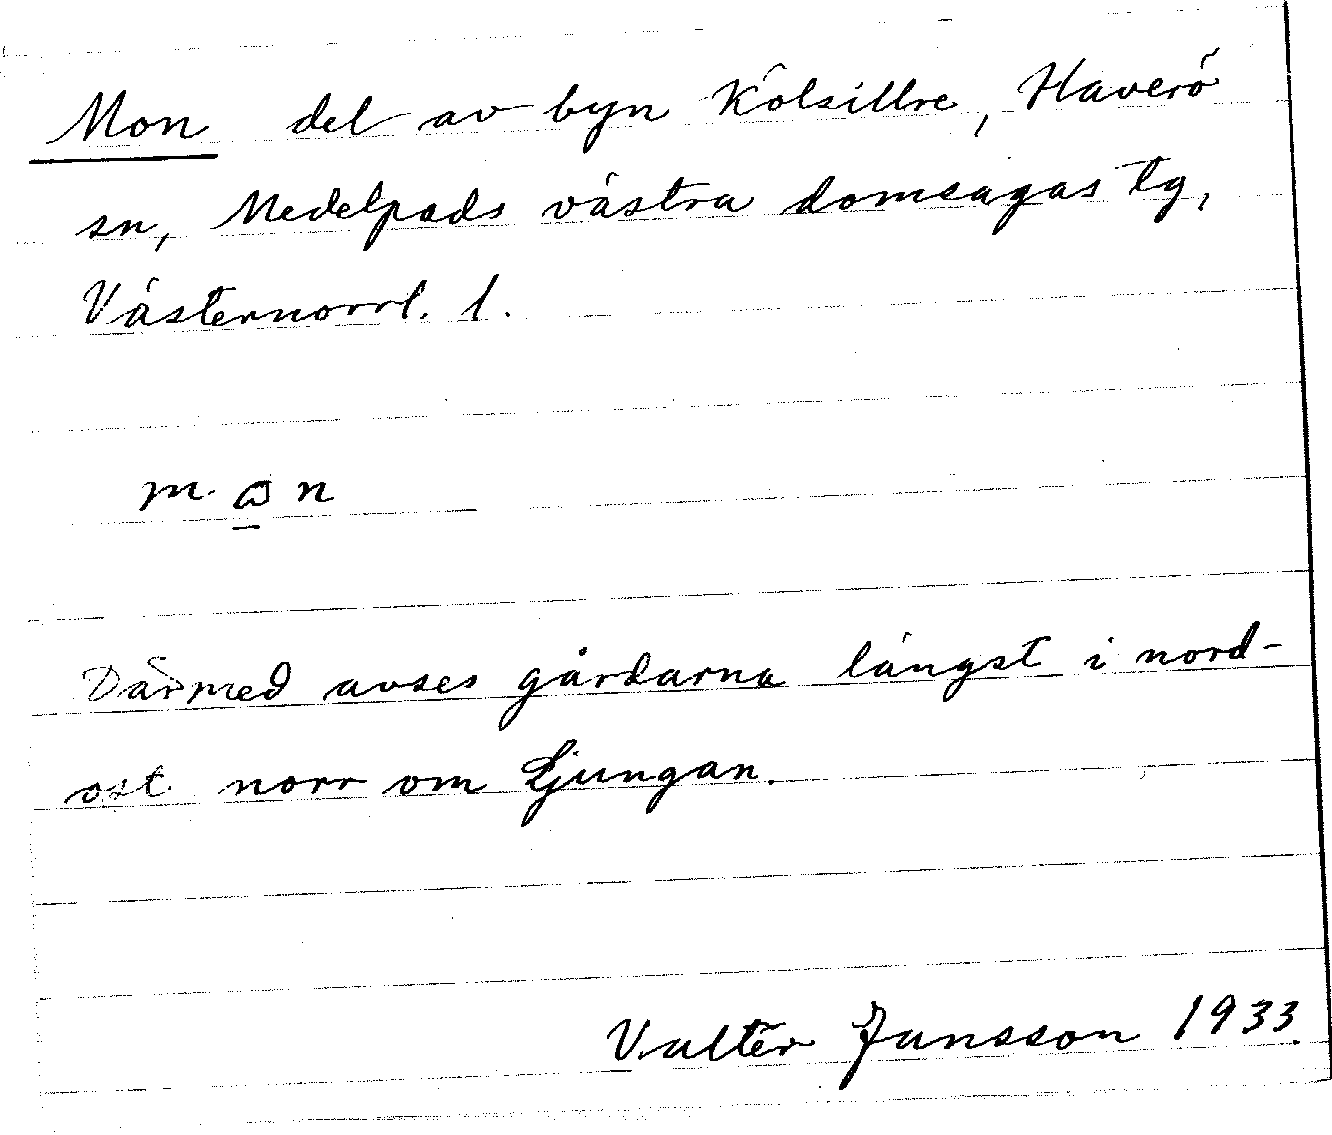 Mon del av byn Kölsillre, Haverö
sn, Medelpads västra domsagas tg,
Västernorrl. l.
Därmed avses gårdarna längst i nord-
ost norr om Ljungan.
Valter Jansson 1933.